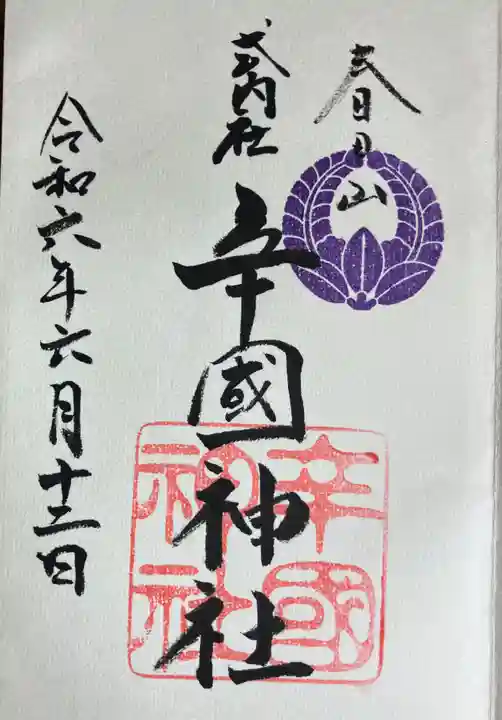 春日山
式内社
辛國神社
令和六年六月十三日
辛國
神社